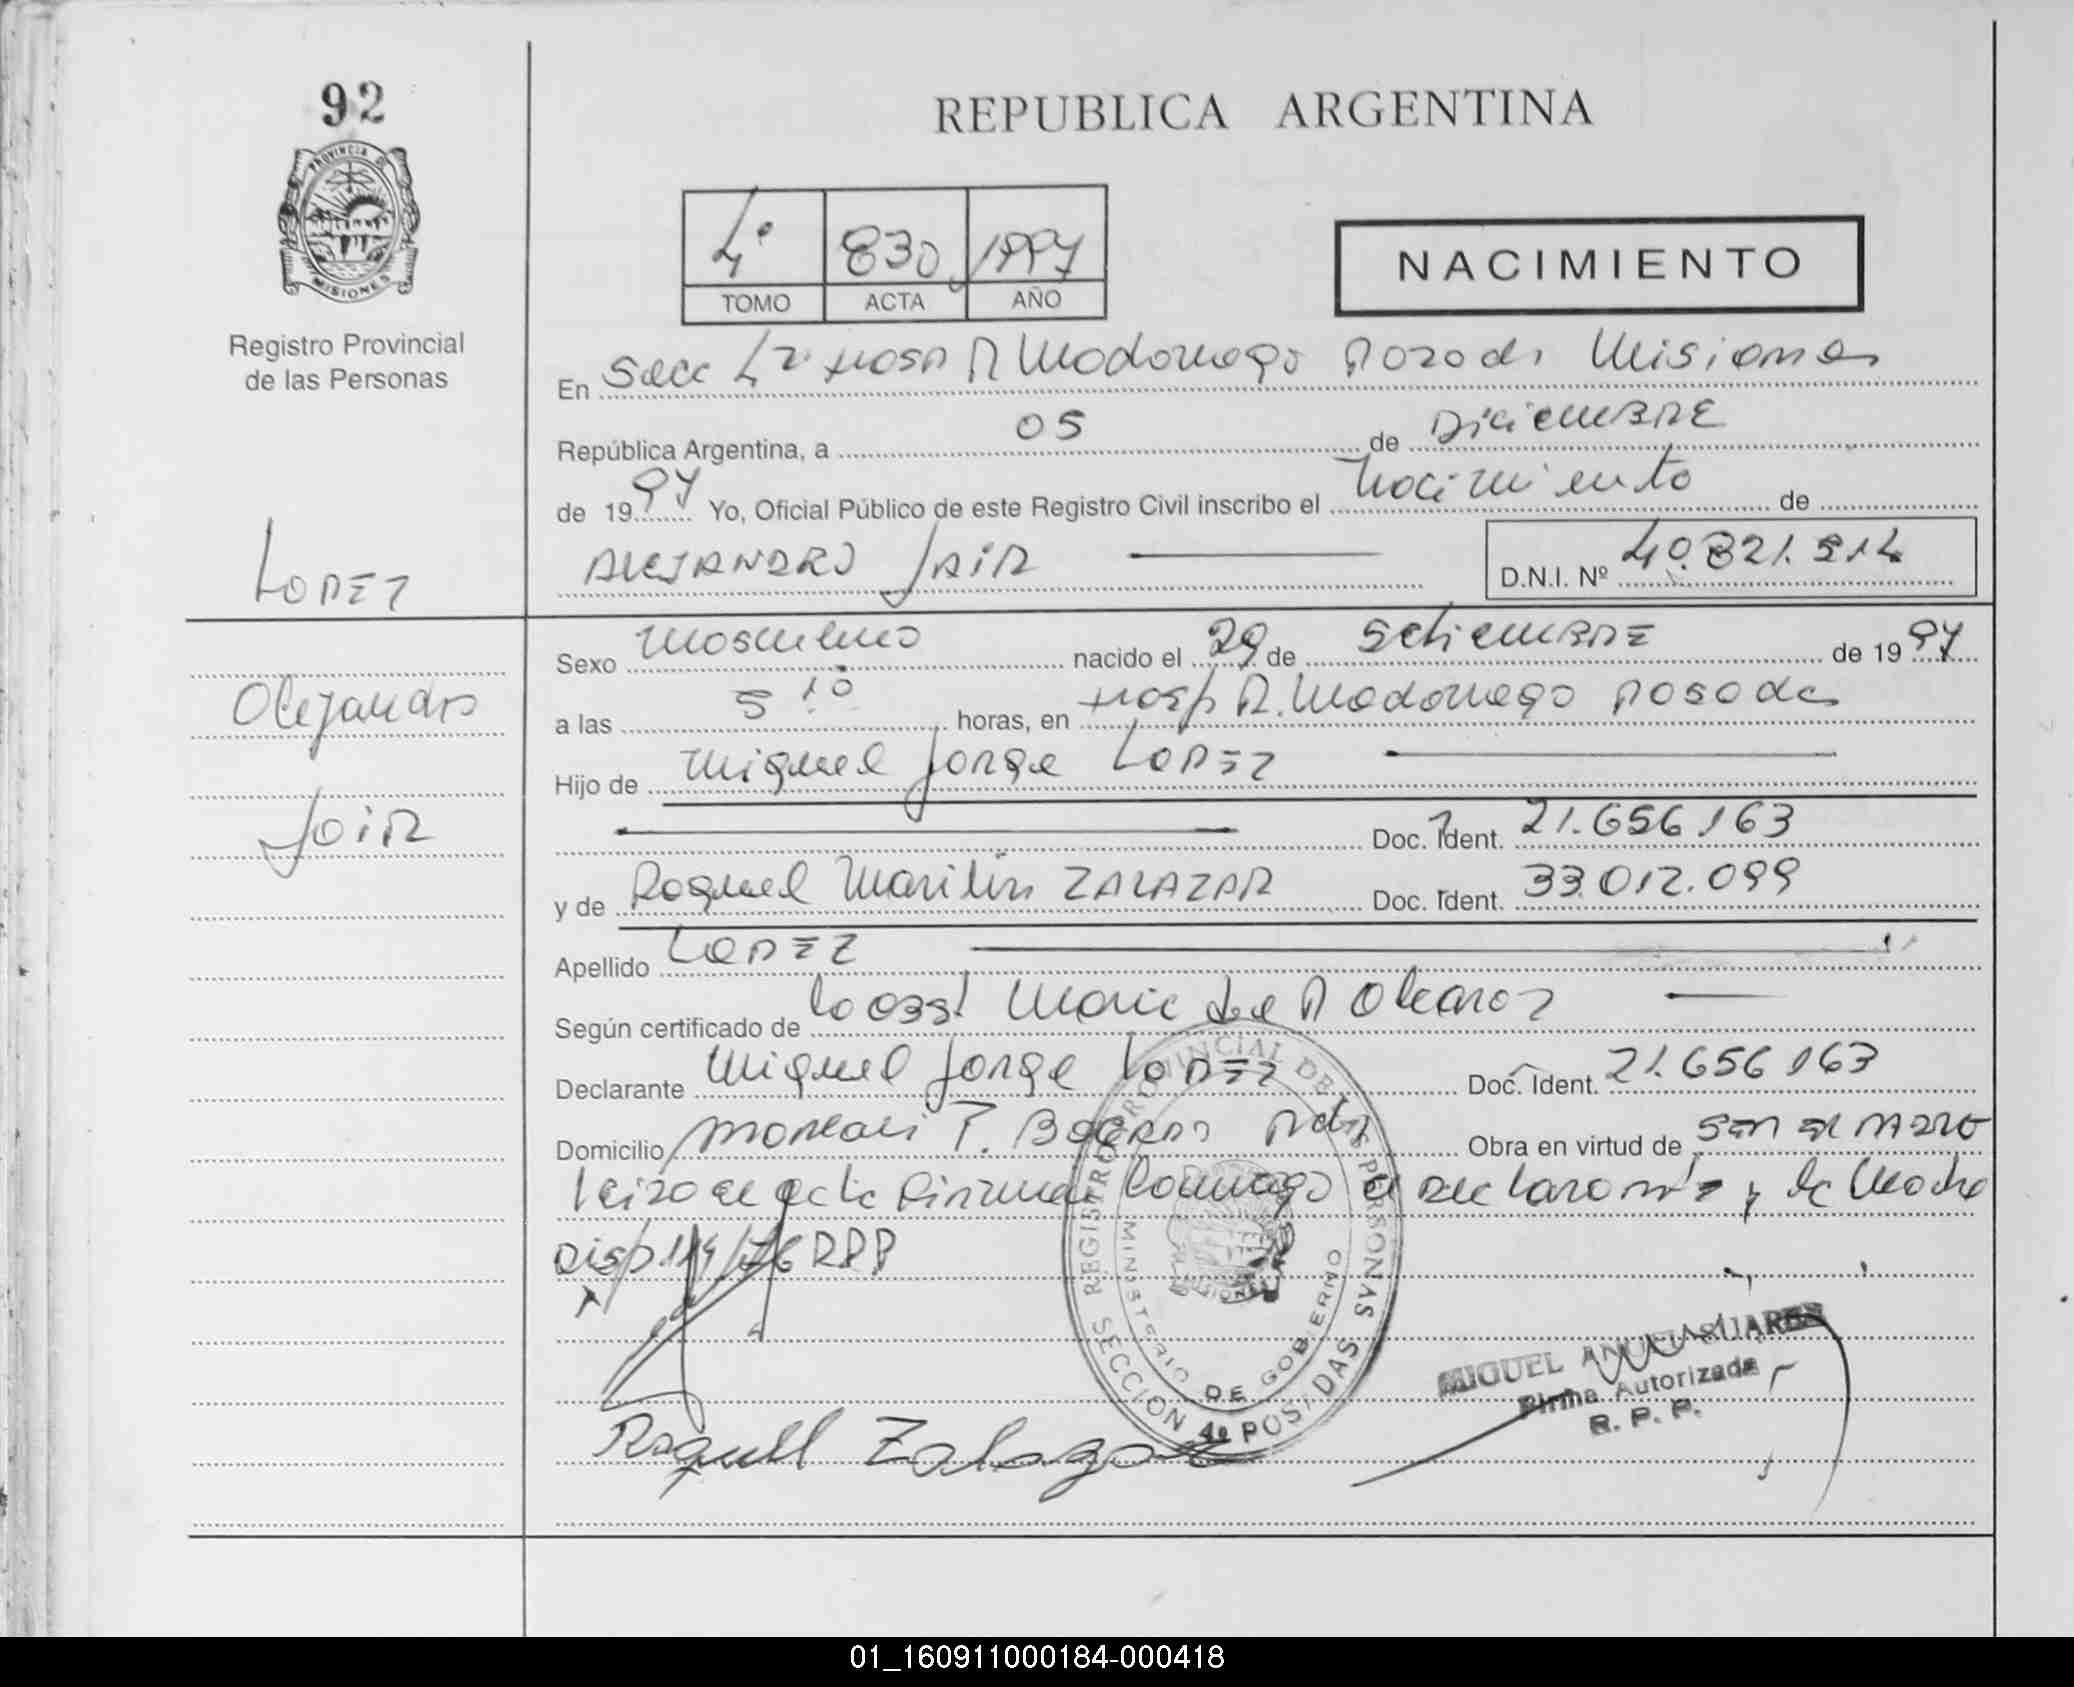 92
PROVINCIA DE
MISIONES
Registro Provincial
de las Personas
REPUBLICA ARGENTINA
4º 830 1997
TOMO ACTA AÑO
NACIMIENTO
En Secc 4ª Hosp R Madariaga Posadas Misiones
República Argentina, a 05 de Diciembre
de 1997 Yo, Oficial Público de este Registro Civil inscribo el Nacimiento de
ALEJANDRO JAIR
D.N.I. Nº 40.821.914
LOPEZ
Alejandro
Jair
Sexo Masculino nacido el 29 de Setiembre de 1997
a las 5 10 horas, en Hosp R. Madariaga Posadas
Hijo de Miguel Jorge LOPEZ
Doc. Ident. 21.656.163
y de Raquel Marilin ZALAZAR Doc. Ident. 33.012.099
Apellido LOPEZ
Según certificado de la Obst Maria de
Declarante Miguel Jorge LOPEZ Doc. Ident. 21.656.163
Domicilio P. Pdas Obra en virtud de ser el padre
Leida el acta Firman Conmigo el declarante y la Madre
Disp. 114/76 RPP
REGISTRO PROVINCIAL DE LAS PERSONAS
MINISTERIO DE GOBIERNO
SECCION 4a POSADAS
MIGUEL ANGEL SUARES
Firma Autorizada
R. P. P.
Raquell Zalazar
01_160911000184-000418